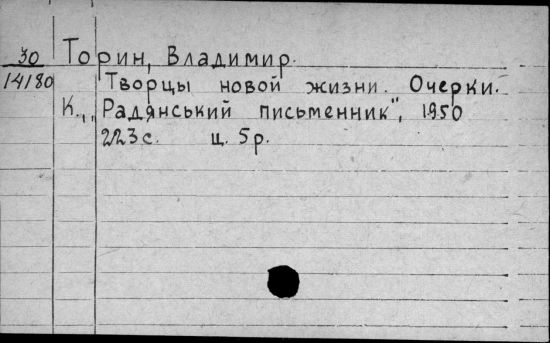 30 Торин, Владимир.
14180 Творцы новой жизни. Очерки.
К., „Радянський письменник", 1950
223 с. ц. 5 р.